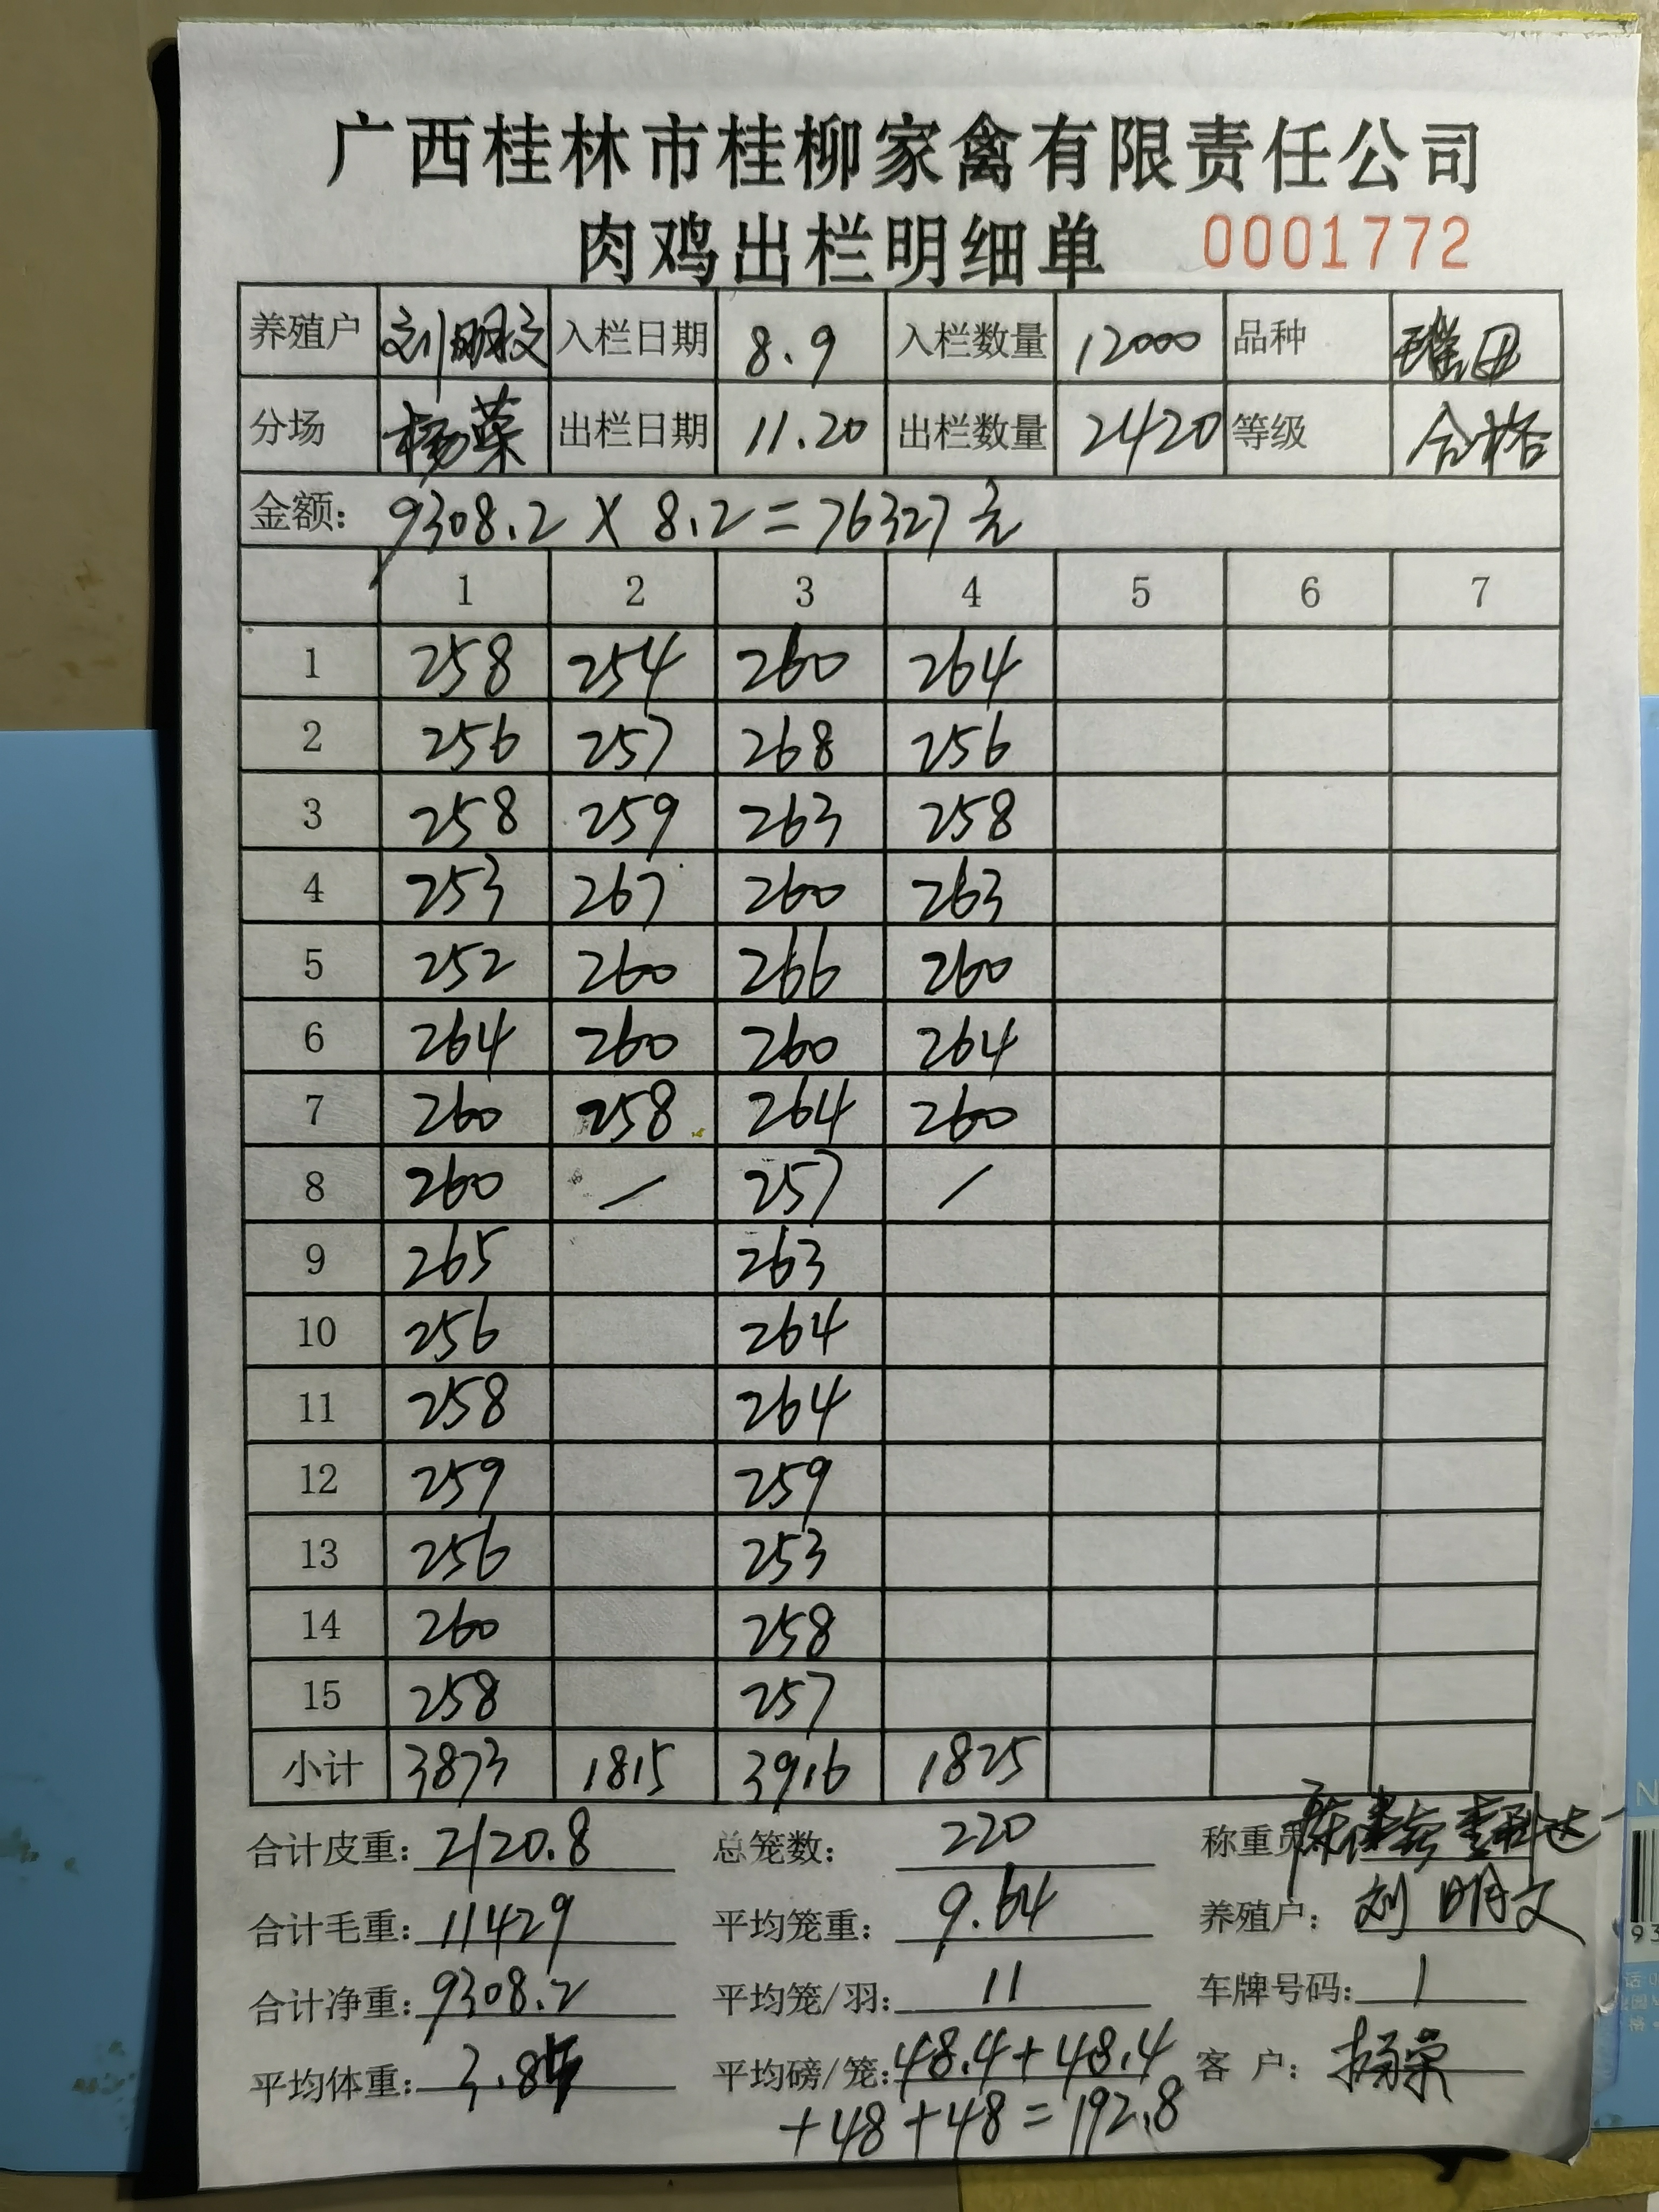 广西桂林市桂柳家禽有限责任公司
肉鸡出栏明细单 0001772
养殖户 刘明文 入栏日期 8.9 入栏数量 12000 品种
分场 杨荣 出栏日期 11.20 出栏数量 2420 等级 合格
金额: 9308.2 X 8.2=76327元
1 2 3 4 5 6 7
1 258 254 260 264
2 256 257 268 256
3 258 259 263 258
4 253 267 260 263
5 252 260 266 260
6 264 260 260 264
7 260 258 264 260
8 260 / 257 /
9 265 263
10 256 264
11 258 264
12 259 259
13 256 253
14 260 258
15 258 257
小计 3873 1815 3916 1825
合计皮重: 2120.8 总笼数: 220 称重员
合计毛重: 11429 平均笼重: 9.64 养殖户: 刘明文
合计净重: 9308.2 平均笼/羽: 11 车牌号码: 1
平均体重: 3.85 平均磅/笼: 48.4+48.4 客户: 杨荣
+48+48=192.8